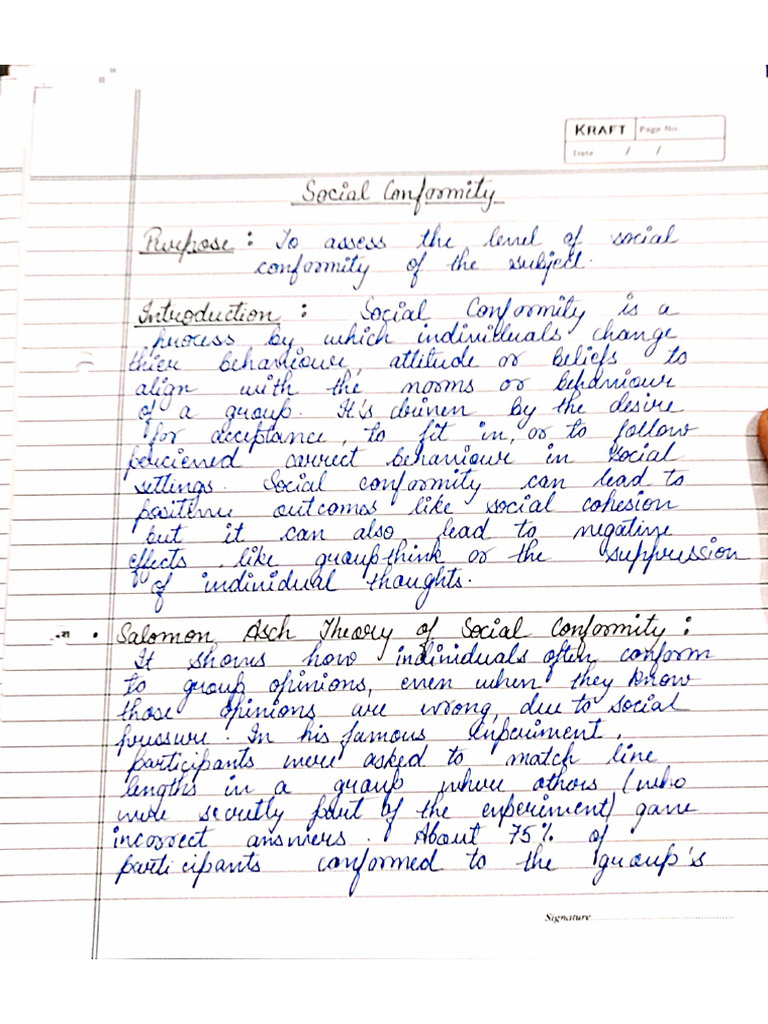 KRAFT Page No.
Date / /
Social Conformity
Purpose : To assess the level of social
conformity of the subject.
Introduction : Social Conformity is a
process by which individuals change
thier behaviour, attitude or beliefs to
align with the norms or behaviour
of a group. It's driven by the desire
for acceptance, to fit in, or to follow
percieved correct behaviour in social
settings. Social conformity can lead to
positive outcomes like social cohesion
but it can also lead to negative
effects like groupthink or the suppression
of individual thoughts.
• Salomon Asch Theory of Social Conformity :
It shows how individuals often conform
to group opinions, even when they know
those opinions are wrong, due to social
pressure. In his famous experiment,
participants were asked to match line
lengths in a group where others (who
were secretly part of the experiment) gave
incorrect answers. About 75% of
participants conformed to the group's
Signature